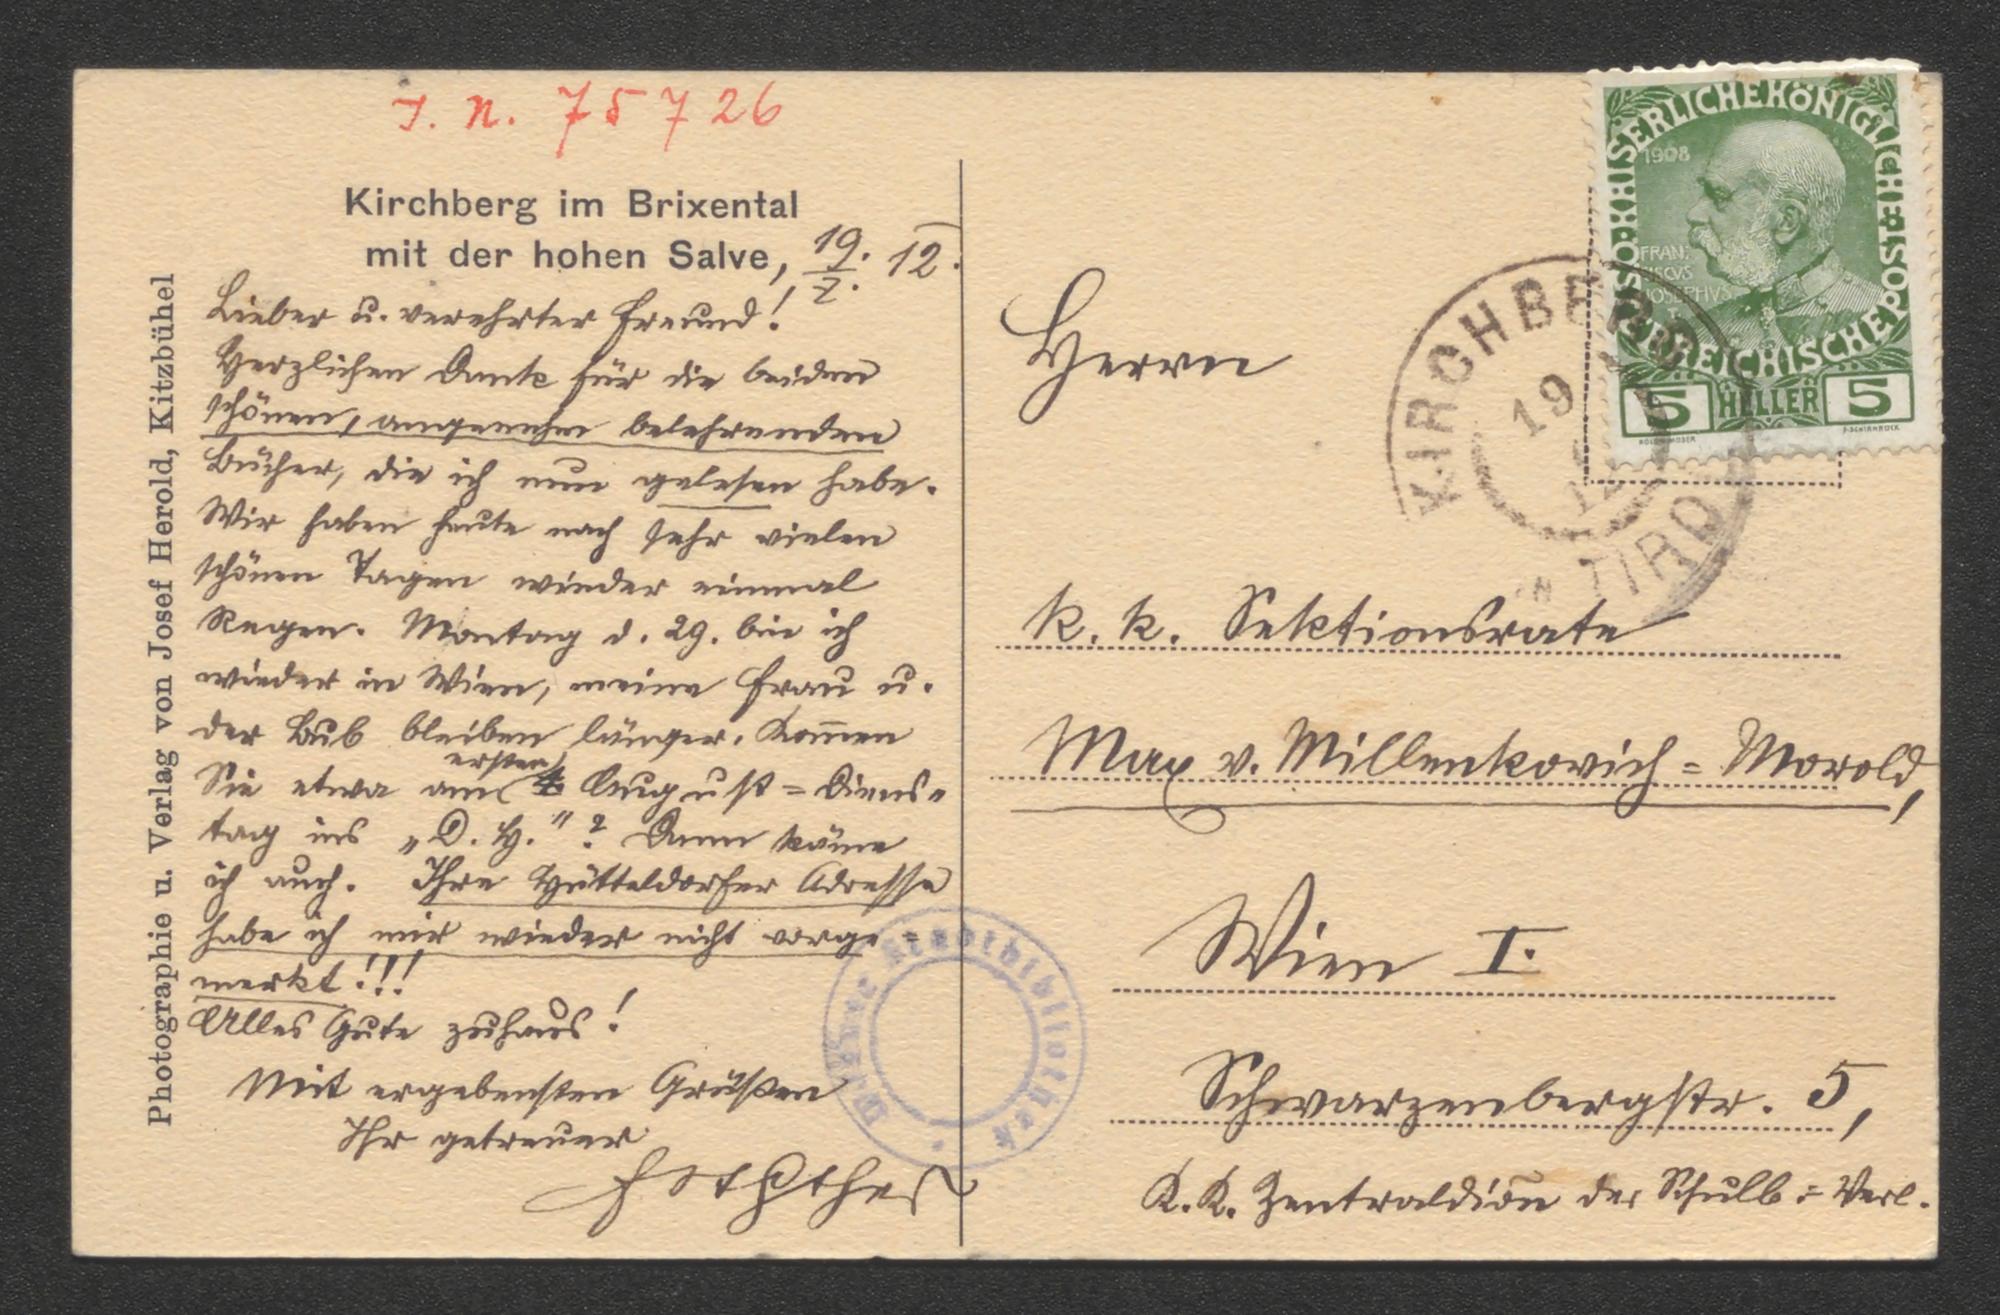 J. N. 75726
Kirchberg im Brixental
mit der hohen Salve, 19./7. 12.
Lieber u. verehrter Freund!
Herzlichen Dank für die beiden
schönen, angenehm belehrenden
Bücher, die ich nun gelesen habe.
Wir haben heute nach sehr vielen
schönen Tagen wieder einmal
Regen. Montag d. 29. bin ich
wieder in Wien, meine Frau u.
der Bub bleiben länger. Kom̅en
Sie etwa am ersten August-Diens-
tag ins „D. H."? Dann käme
ich auch. Ihre Hütteldorfer Adresse
habe ich mir wieder nicht vorge-
merkt!!!
Alles Gute zuhaus!
Mit ergebensten Grüßen
Ihr getreuer
Photographie u. Verlag von Josef Herold, Kitzbühel
Wiener Stadtbibliothek
KAISERLICHE KÖNIGLICHE ÖSTERREICHISCHE POST
1908
FRANCISCVS JOSEPHVS I
5 HELLER 5
KIRCHBERG
19
12
IN TIROL
Herrn
k. k. Sektionsrate
Max v. Millenkovich-Morold,
Wien I.
Schwarzenbergstr. 5,
K. K. Zentraldion der Schulb-Verl.